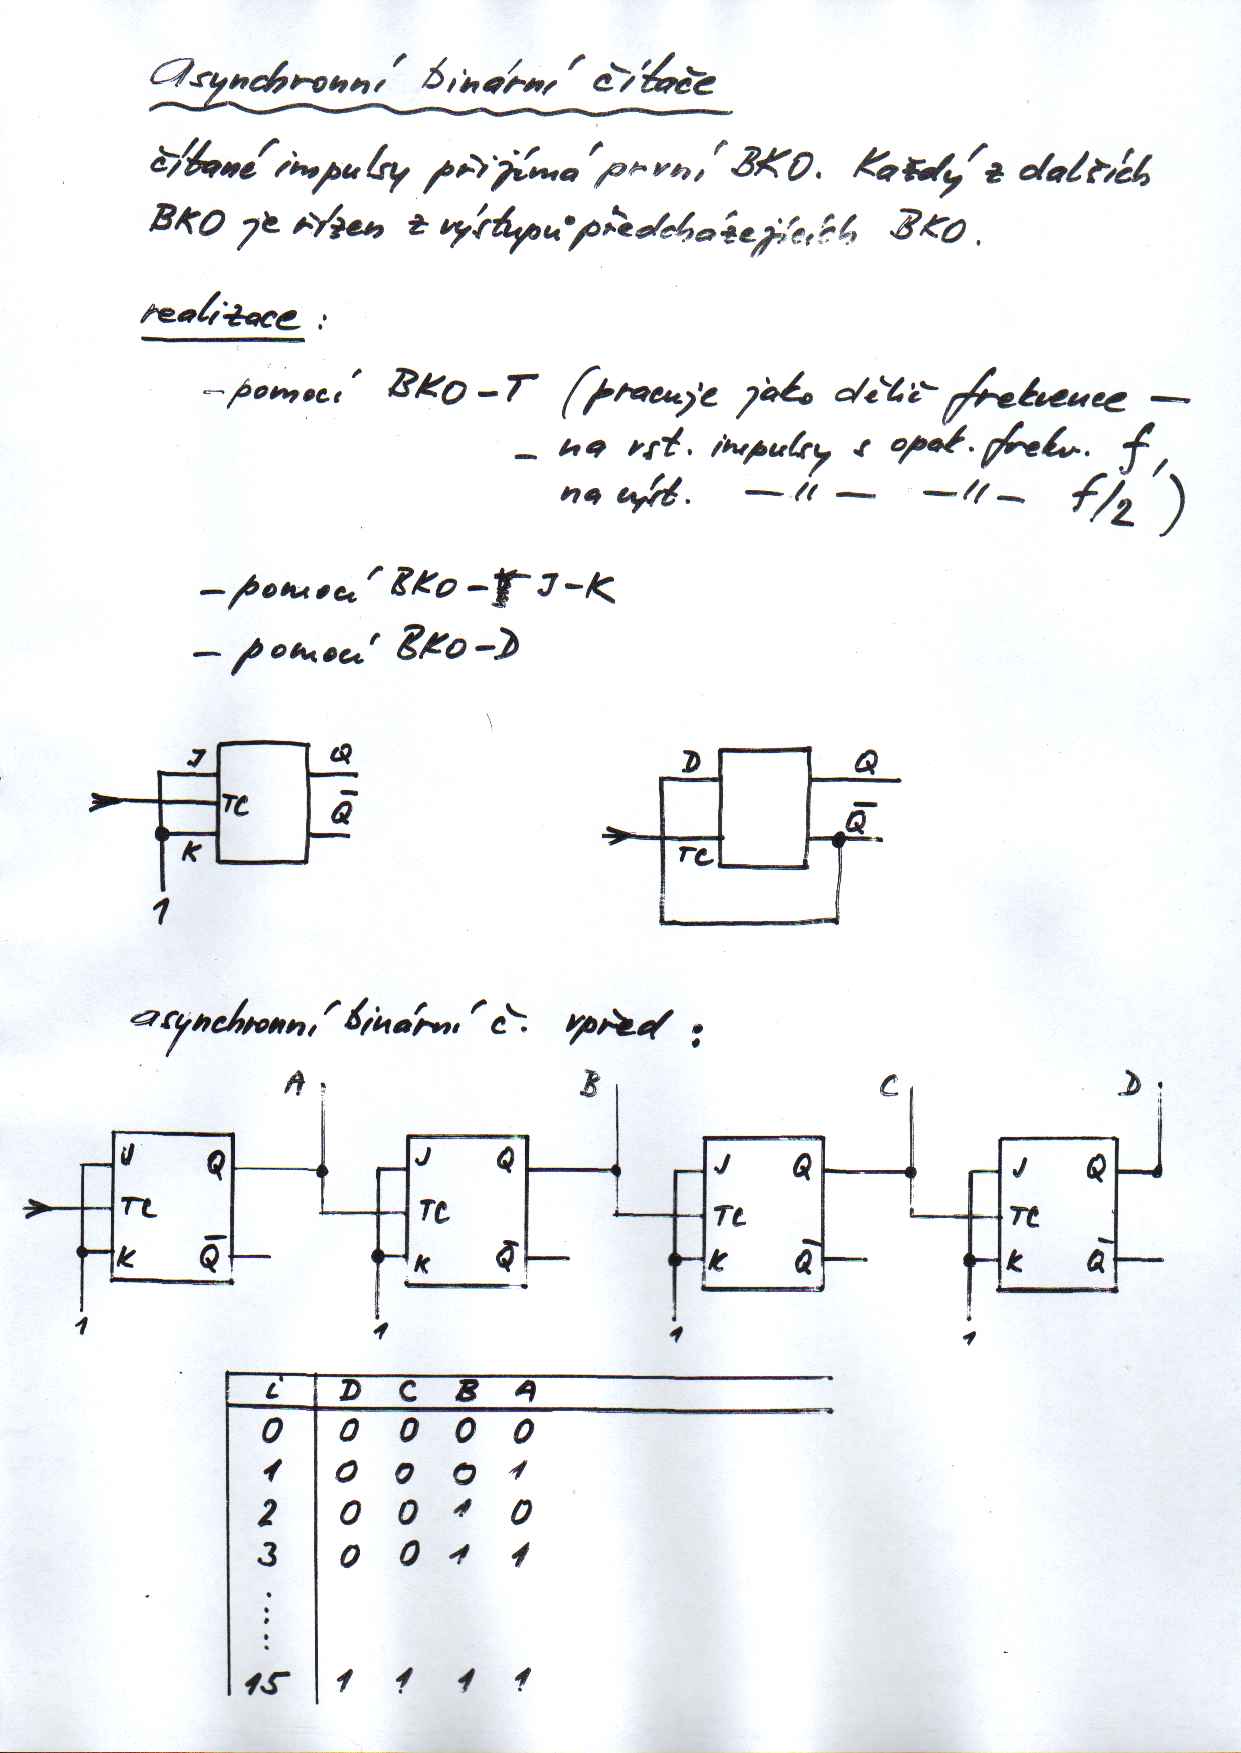 Asynchronní binární čítače
čítané impulsy přijímá první BKO. Každý z dalších
BKO je řízen z výstupů předcházejících BKO.
realizace :
- pomocí BKO-T (pracuje jako dělič frekvence —
- na vst. impulsy s opak. frekv. f,
na výst. —〃— —〃— f/2 )
- pomocí BKO- J-K
- pomocí BKO-D
J Q
TC Q̅
K
1
D Q
TC Q̅
asynchronní binární č. vpřed :
A B C D
J Q J Q J Q J Q
TC TC TC TC
K Q̅ K Q̅ K Q̅ K Q̅
1 1 1 1
i D C B A
0 0 0 0 0
1 0 0 0 1
2 0 0 1 0
3 0 0 1 1
......
15 1 1 1 1